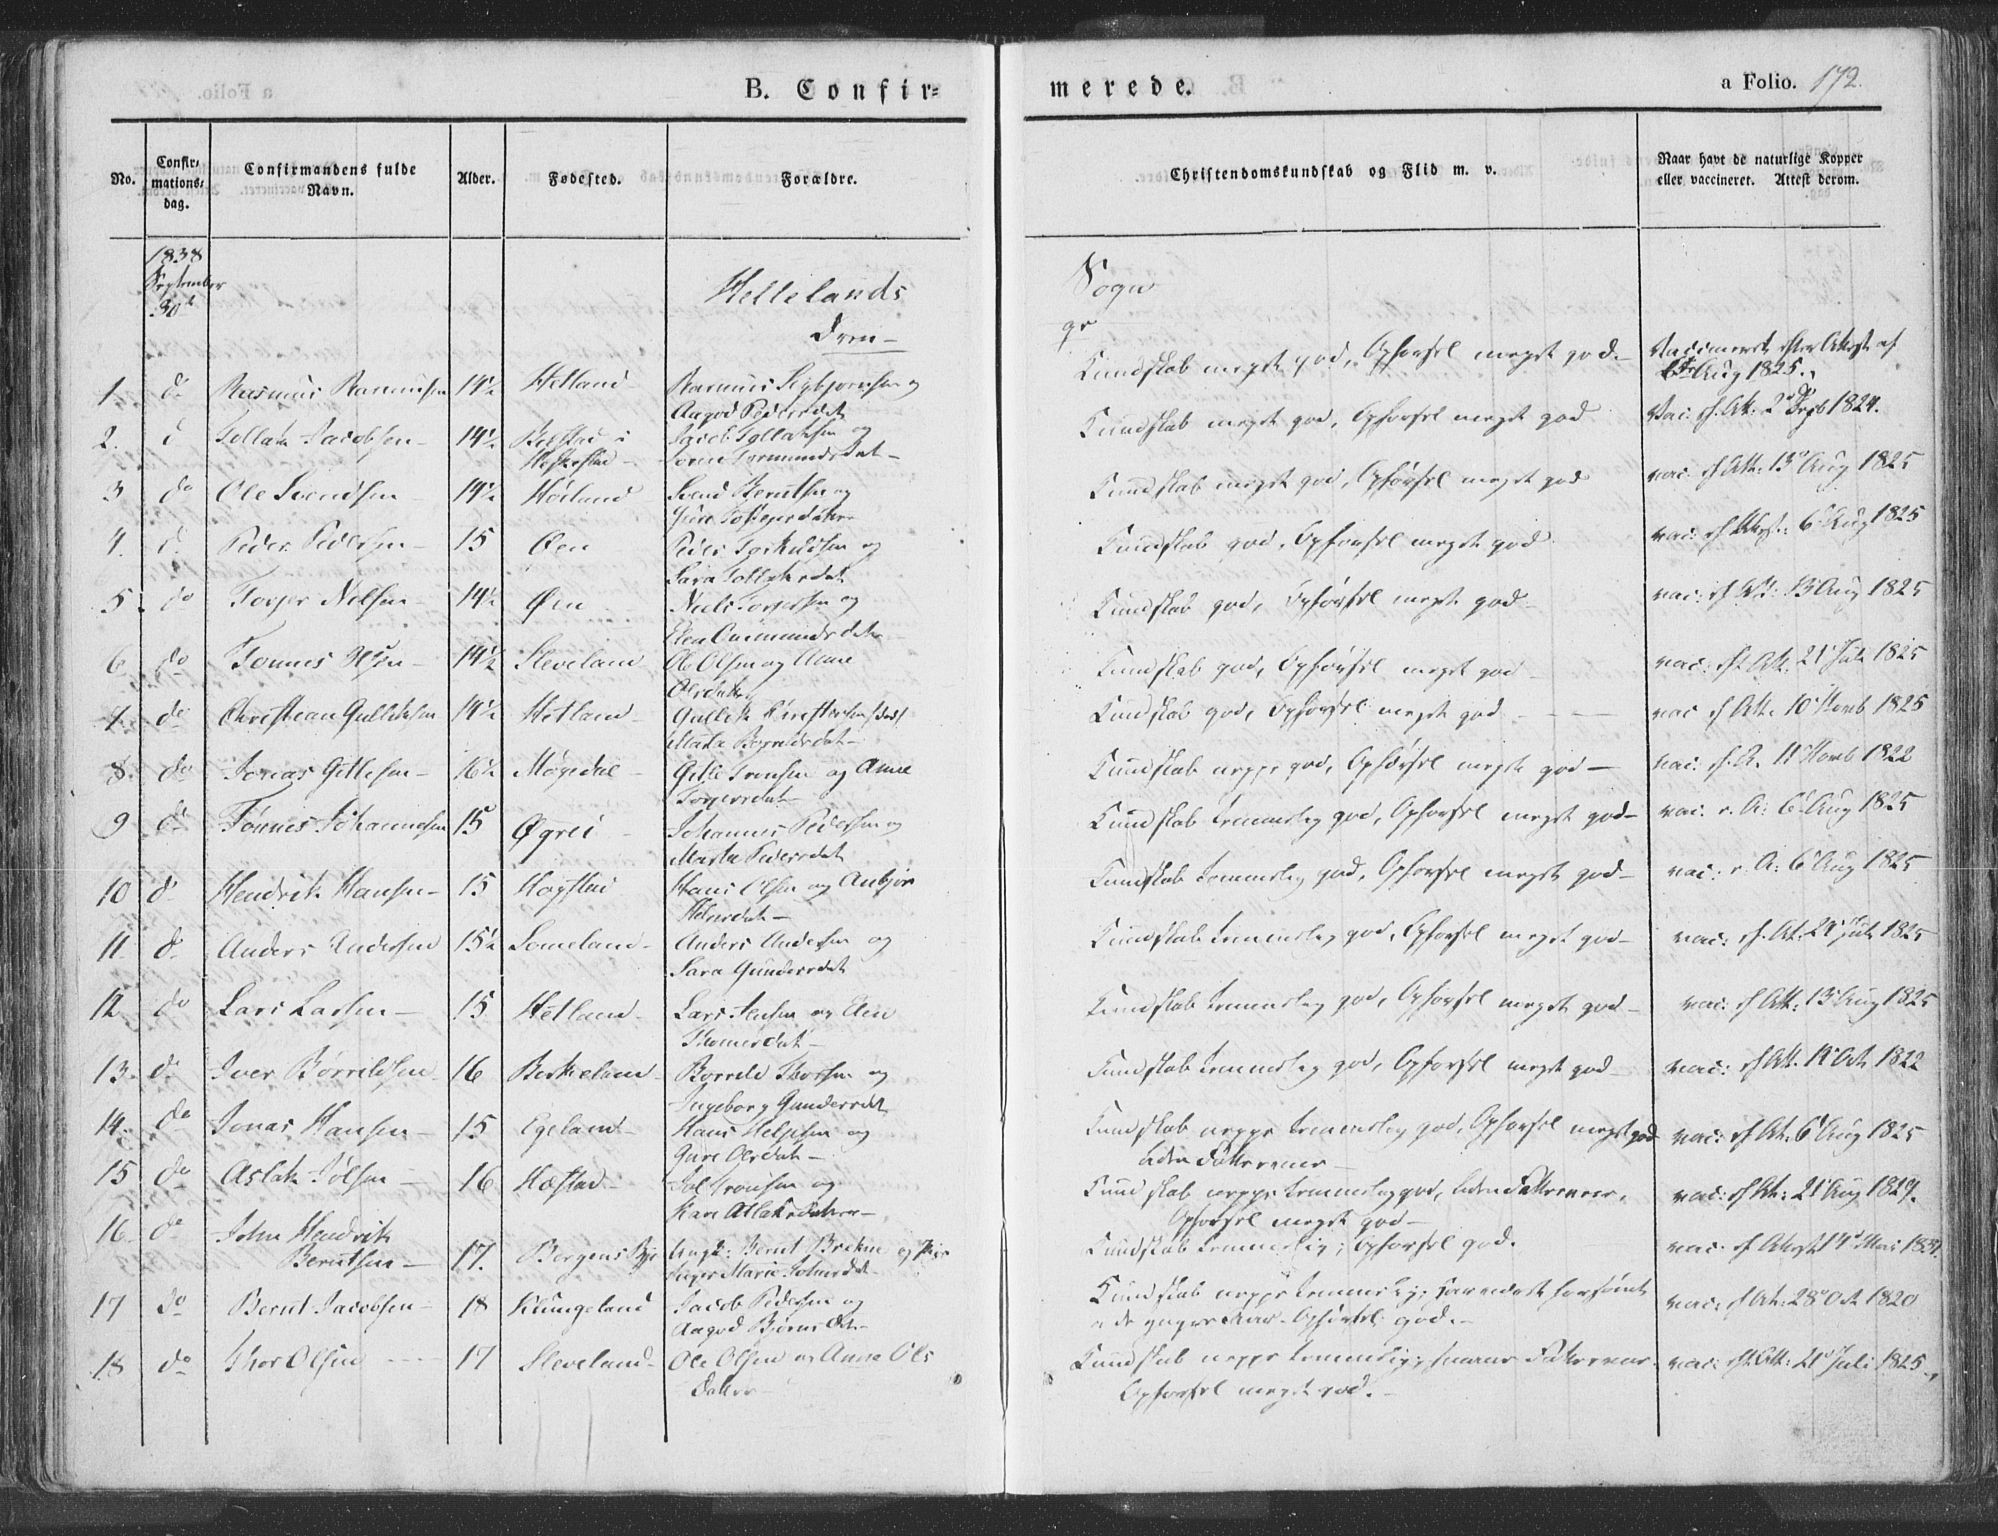 B. Confir=
merede.
a Folio. 172.
No.
Confir-
mations-
dag.
Confirmandens fulde
Navn.
Alder.
Fødested.
Forældre.
Christendomskundskab og Flid m. v.
Naar havt de naturlige Kopper
eller vaccineret. Attest derom.
1838
September
30te
Hellelands
Sogn
Dren-
ge
1. do Rasmus Rasmusen 14½ Hetland Rasmus og
Aagod Pedersdat
Kundskab meget god, Opførsel meget god - Vaccineret efter Attest af
Aug 1825.
2. d Tollak Jacobsen 14½ i Jacob Tollaksen og
Heskestad - Tormundsdat -
Kundskab meget god, Opførsel meget god vac. ef. Att. 2 1824.
3 do Ole Svendsen 14½ Svend Berntsen og
Kundskab meget god, Opførsel meget god vac. ef Att: 13 Aug 1825
4. d. Peder Pedersen 15 Øen Peder og
Sara
Kundskab god, Opførsel meget god vac: ef Attest: 6 Aug 1825
5 do Torger Nilsen 14½ Øen Niels Torgersen og
Elen
Kundskab god, Opførsel meget god vac: ef Att: 13 Aug 1825
6 do Tønnes 14½ Sleveland Ole Olsen og Anne
Olsdatter
Kundskab god, Opførsel meget god vac: eft Att. 21 Juli 1825
7 do Christian Gulliksen 14½ Hetland Gullik Christensen
Marta
Kundskab god, Opførsel meget god - - - vac ef Att. 10 Novb 1825
8. do Jonas Gitlesen 16½ Møgedal Gitle og Anne
Torgersdat
Kundskab neppe god, Opførsel meget god - vac. ef. A. 11 Novb 1822
9 do Tønnes Johannesen 15 Øgrei Johannes Pedersen og
Marta Pedersdat
Kundskab temmelig god, Opførsel meget god - vac. e. A: 6 Aug 1825
10 d Hendrik Hansen 15 Hans Olsen og Anbjør
Kundskab temmelig god, Opførsel meget god - vac: e. A: 6 Aug 1825
11. d Anders Andersen 15½ Someland Anders Andersen og
Sara Gundersdat
Kundskab temmelig god, Opførsel meget god - vac: ef. At. Juli 1825
12 do Lars Larsen 15 Hetland Lars Jensen og Elen
Kundskab temmelig god, Opførsel meget god - vac: ef Att: 13 Aug 1825
13. do Iver Børrildsen 16 Birkeland Børrild og
Ingeborg Gundersdat
Kundskab temmelig god, Opførsel meget god - vac: ef Att. Oct 1822
14. do Jonas Hansen 15 Egeland Hans og
Guri Olsdat -
Kundskab neppe temmelig god, Opførsel meget god vac: ef At: 6 Aug 1825
liden Fatteevne -
15 do Aslak 16 Hæstad og
Kari
Kundskab neppe temmelig god, liden Fatteevne, vac: ef Att: 21 Aug 1829.
Opførsel meget god -
16. do John Hendrik
Berntsen 17. Bergens Bye Bernt og
Inger Marie
Kundskab temmelig; Opførsel god. vac. ef Attest 14 Mai
17 do Bernt Jacobsen 18 Klungeland Jacob Pedersen og
Aagod
Kundskab neppe temmelig; har været forsømt vac: ef At: 28 Oct 1820
i de yngre Aar. Opførsel god.-
18 do Thor Olsen 17 Sleveland Ole Olsen og Anna Ols
datter
Kundskab neppe temmelig; Fatteevne. vac: eft Att: 21 Juli 1825
Opførsel meget god. -